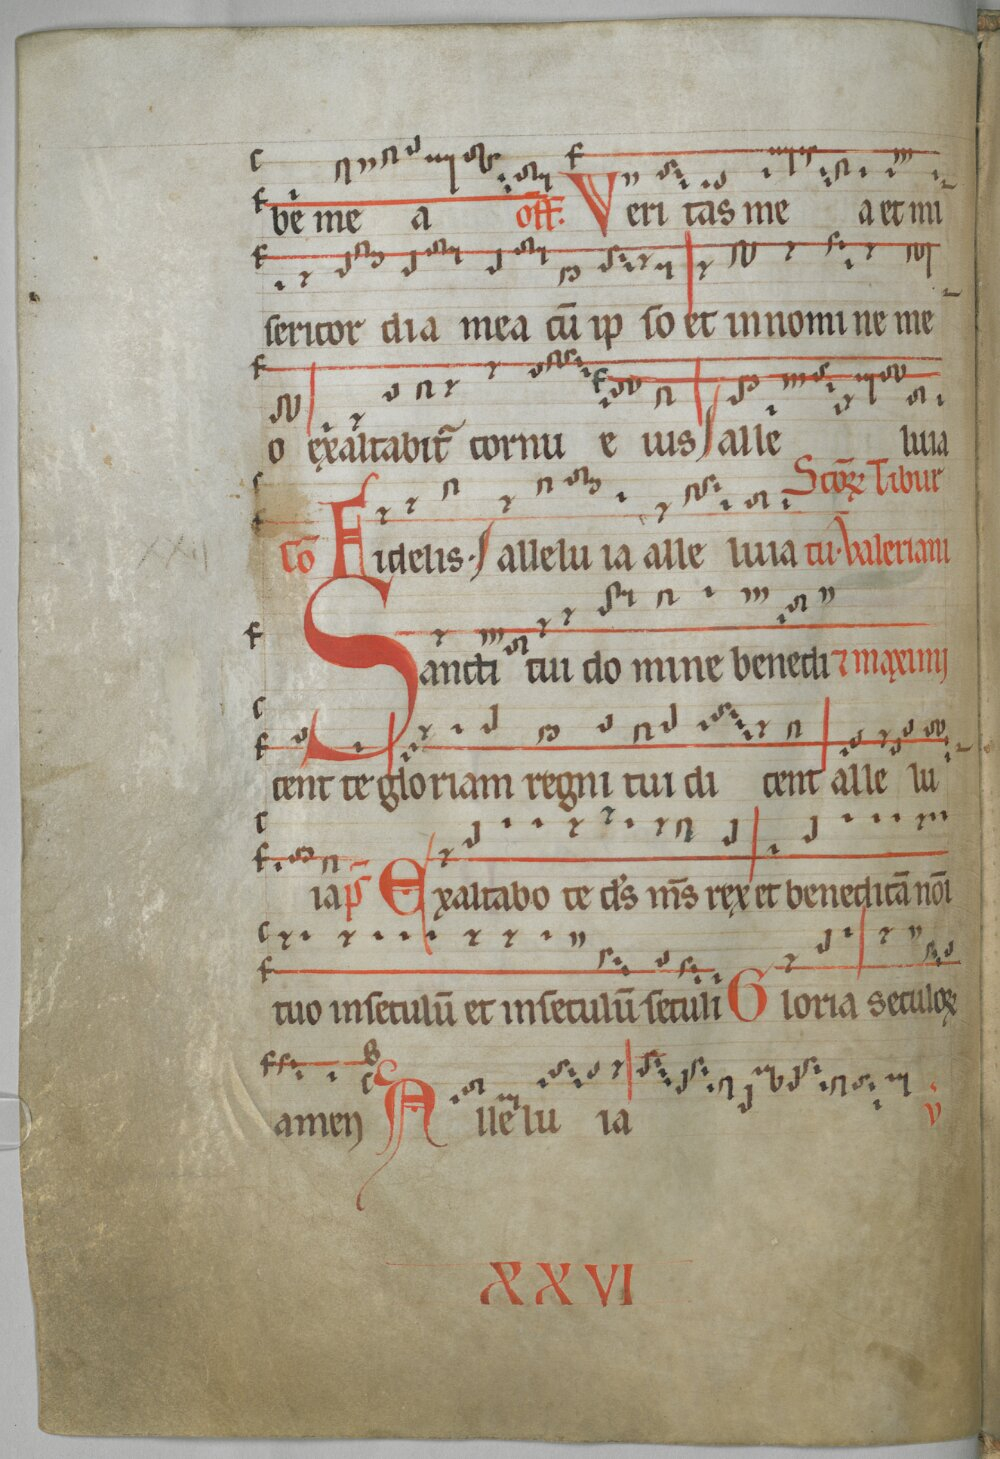 be me a off. Veri tas me a et mi
sericor dia mea cū ip so et in nomi ne me
o exaltabit͂ cornu e ius alle luia
Scōꝝ Tibur
Cō Fidelis. allelu ia alle luia tii. valeriani
Sancti tui do mine benedi ⁊ maximi
cent te gloriam regni tui di cent alle lu
ia p̄s Exaltabo te ds̄ ms̄ rex et benedicā nōi
tuo in seculū et in seculū seculi Gloria seculoꝝ
amen Allelu ia v
XXVI